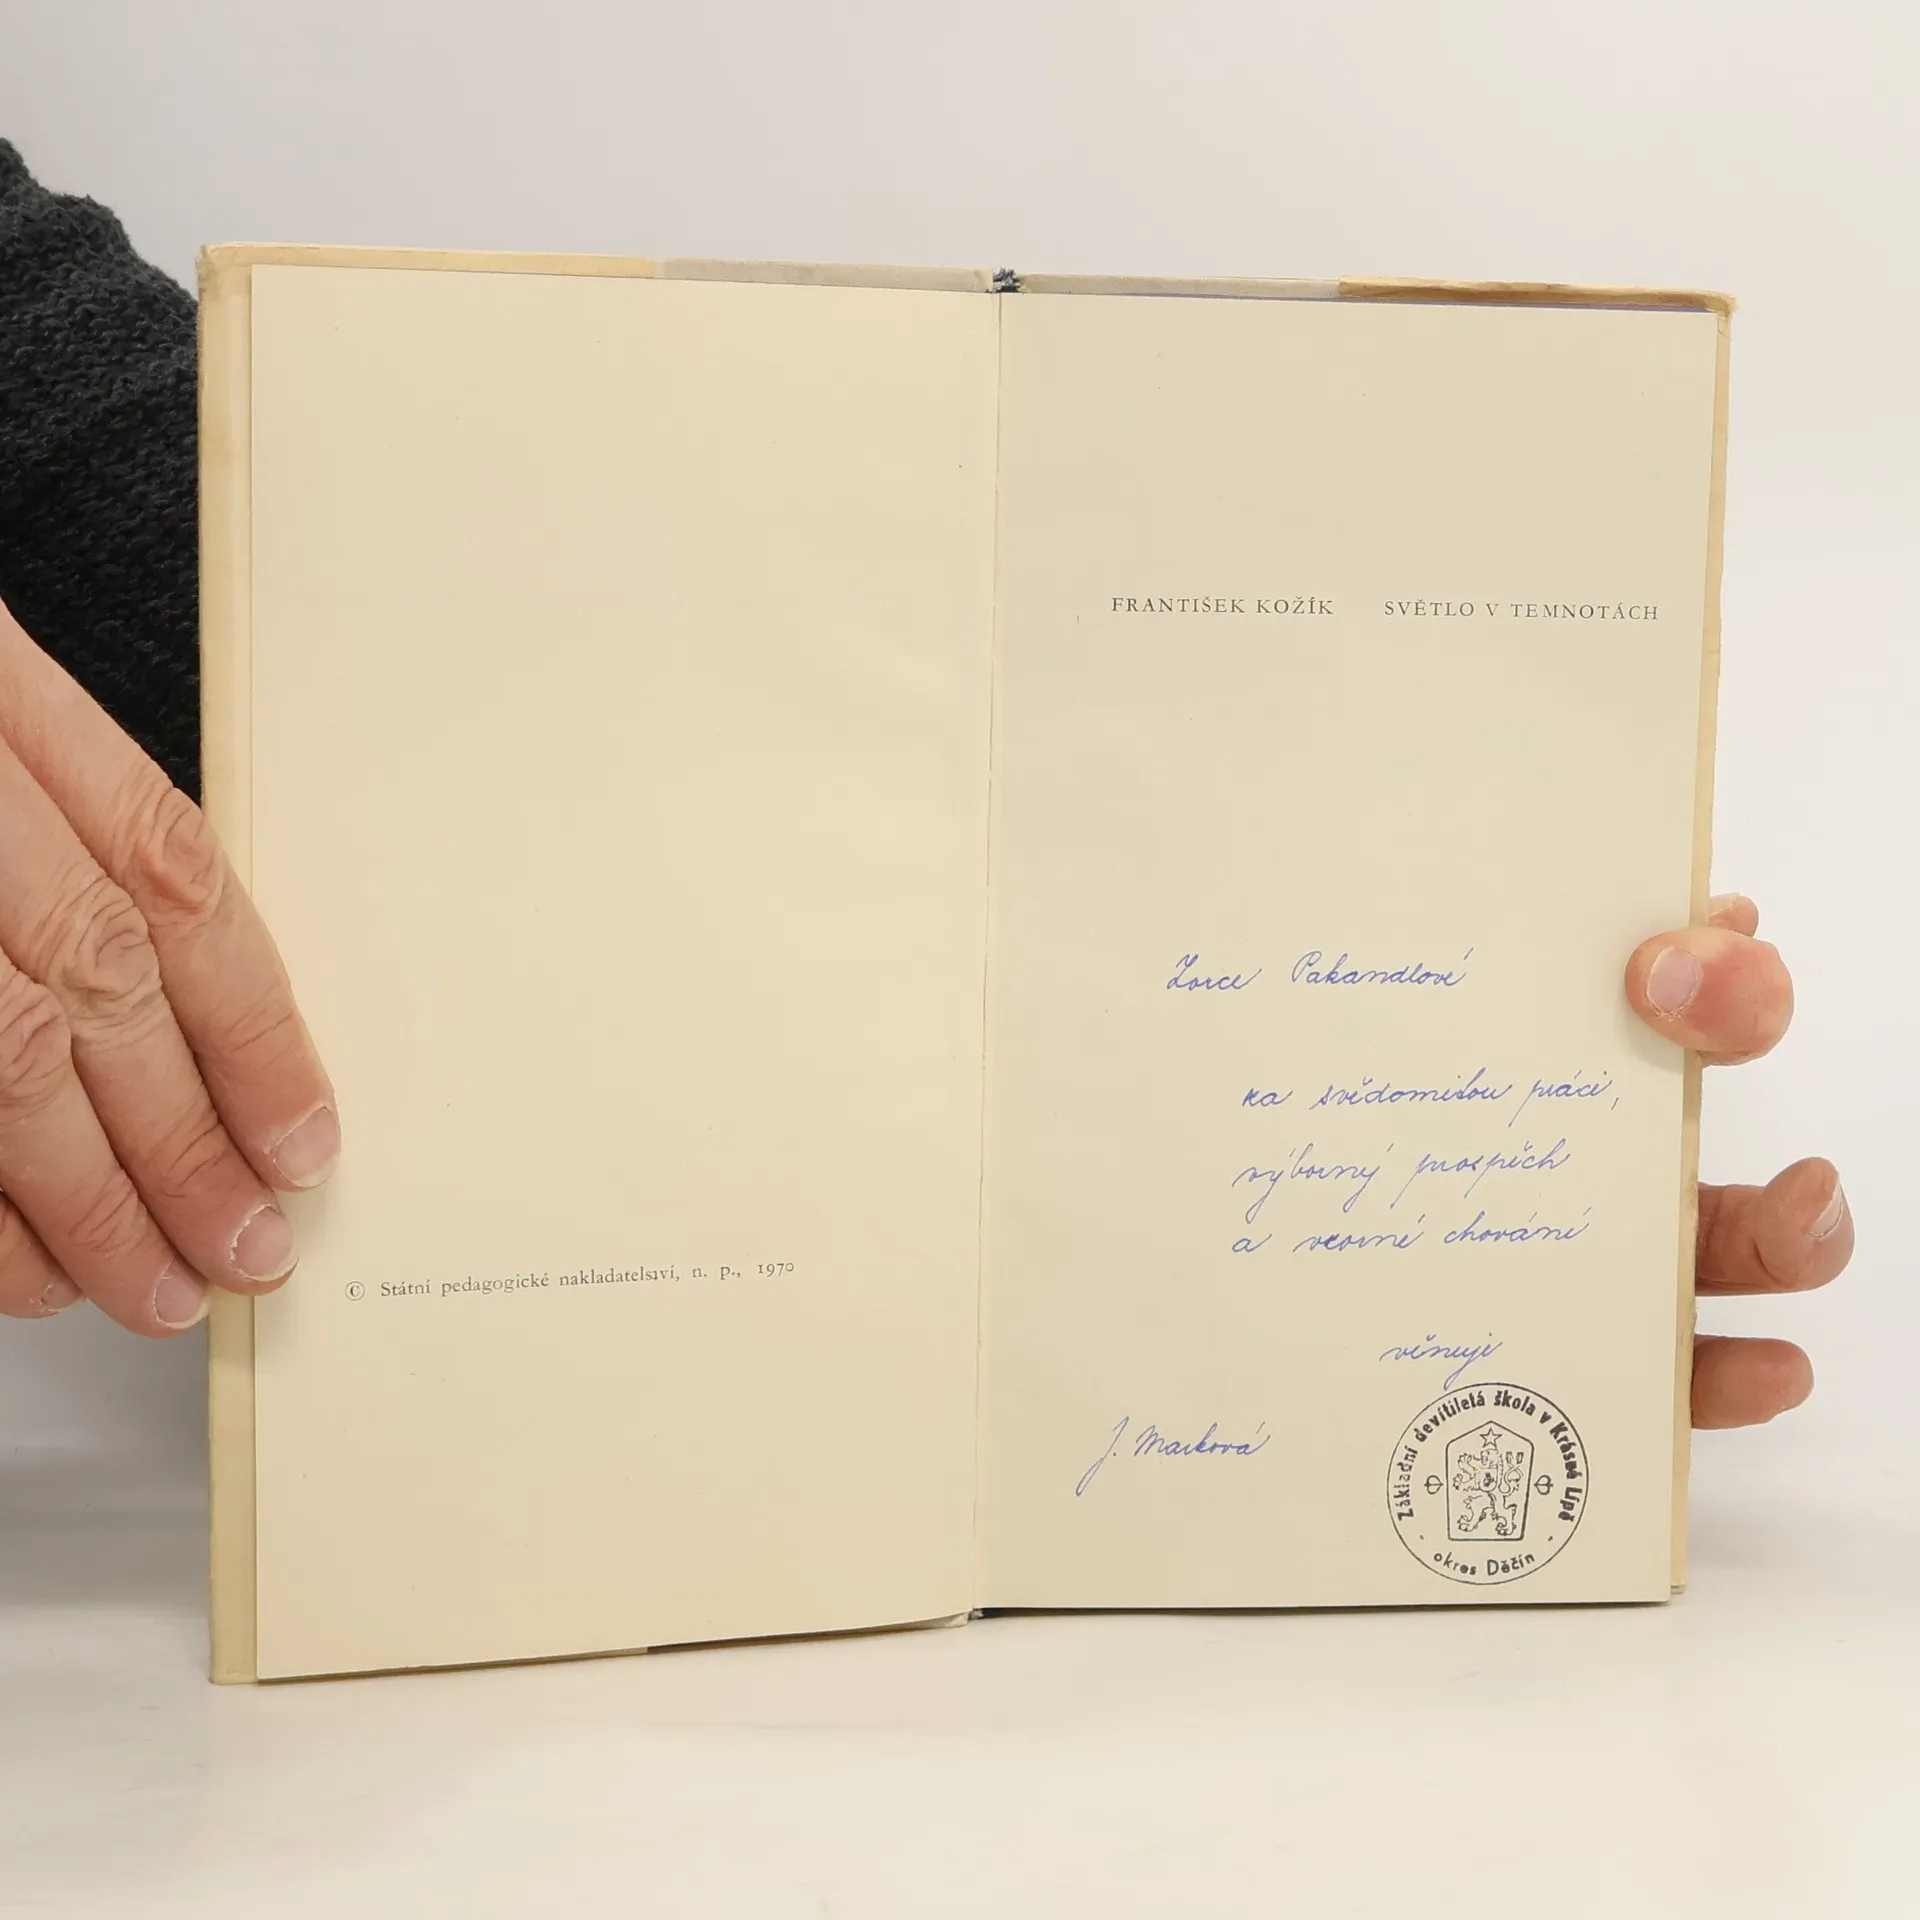 © Státní pedagogické nakladatelství, n. p., 1970
FRANTIŠEK KOŽÍK SVĚTLO V TEMNOTÁCH
Zorce Pakandlové
za svědomitou práci,
výborný prospěch
a vzorné chování
věnuje
J. Marková
Základní devítiletá škola v Krásné Lípě
okres Děčín